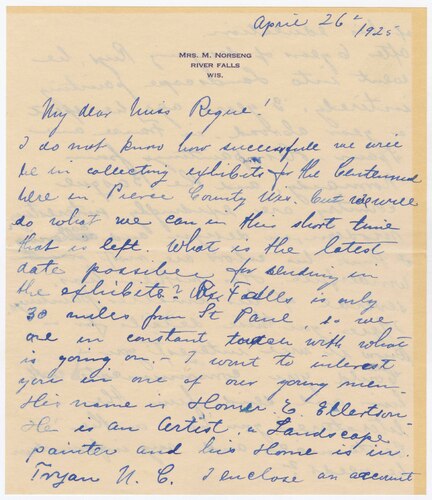 April 26" 1925
MRS. M. NORSENG
RIVER FALLS
WIS.
My dear Miss Reque!
I do not know how successfull we will
be in collecting exhibits for the Centennial
here in Pierce County Wis. but we will
do what we can in this short time
that is left. What is the latest
date possible for sending in
the exhibits? River Falls is only
30 miles from St Paul, so we
are in constant touch with what
is going on. - I want to interest
you in one of our young men
His name is Homer E. Ellertson
He is an Artist, a Landscape
painter and his Home is in
Tryon N. C. I enclose an account